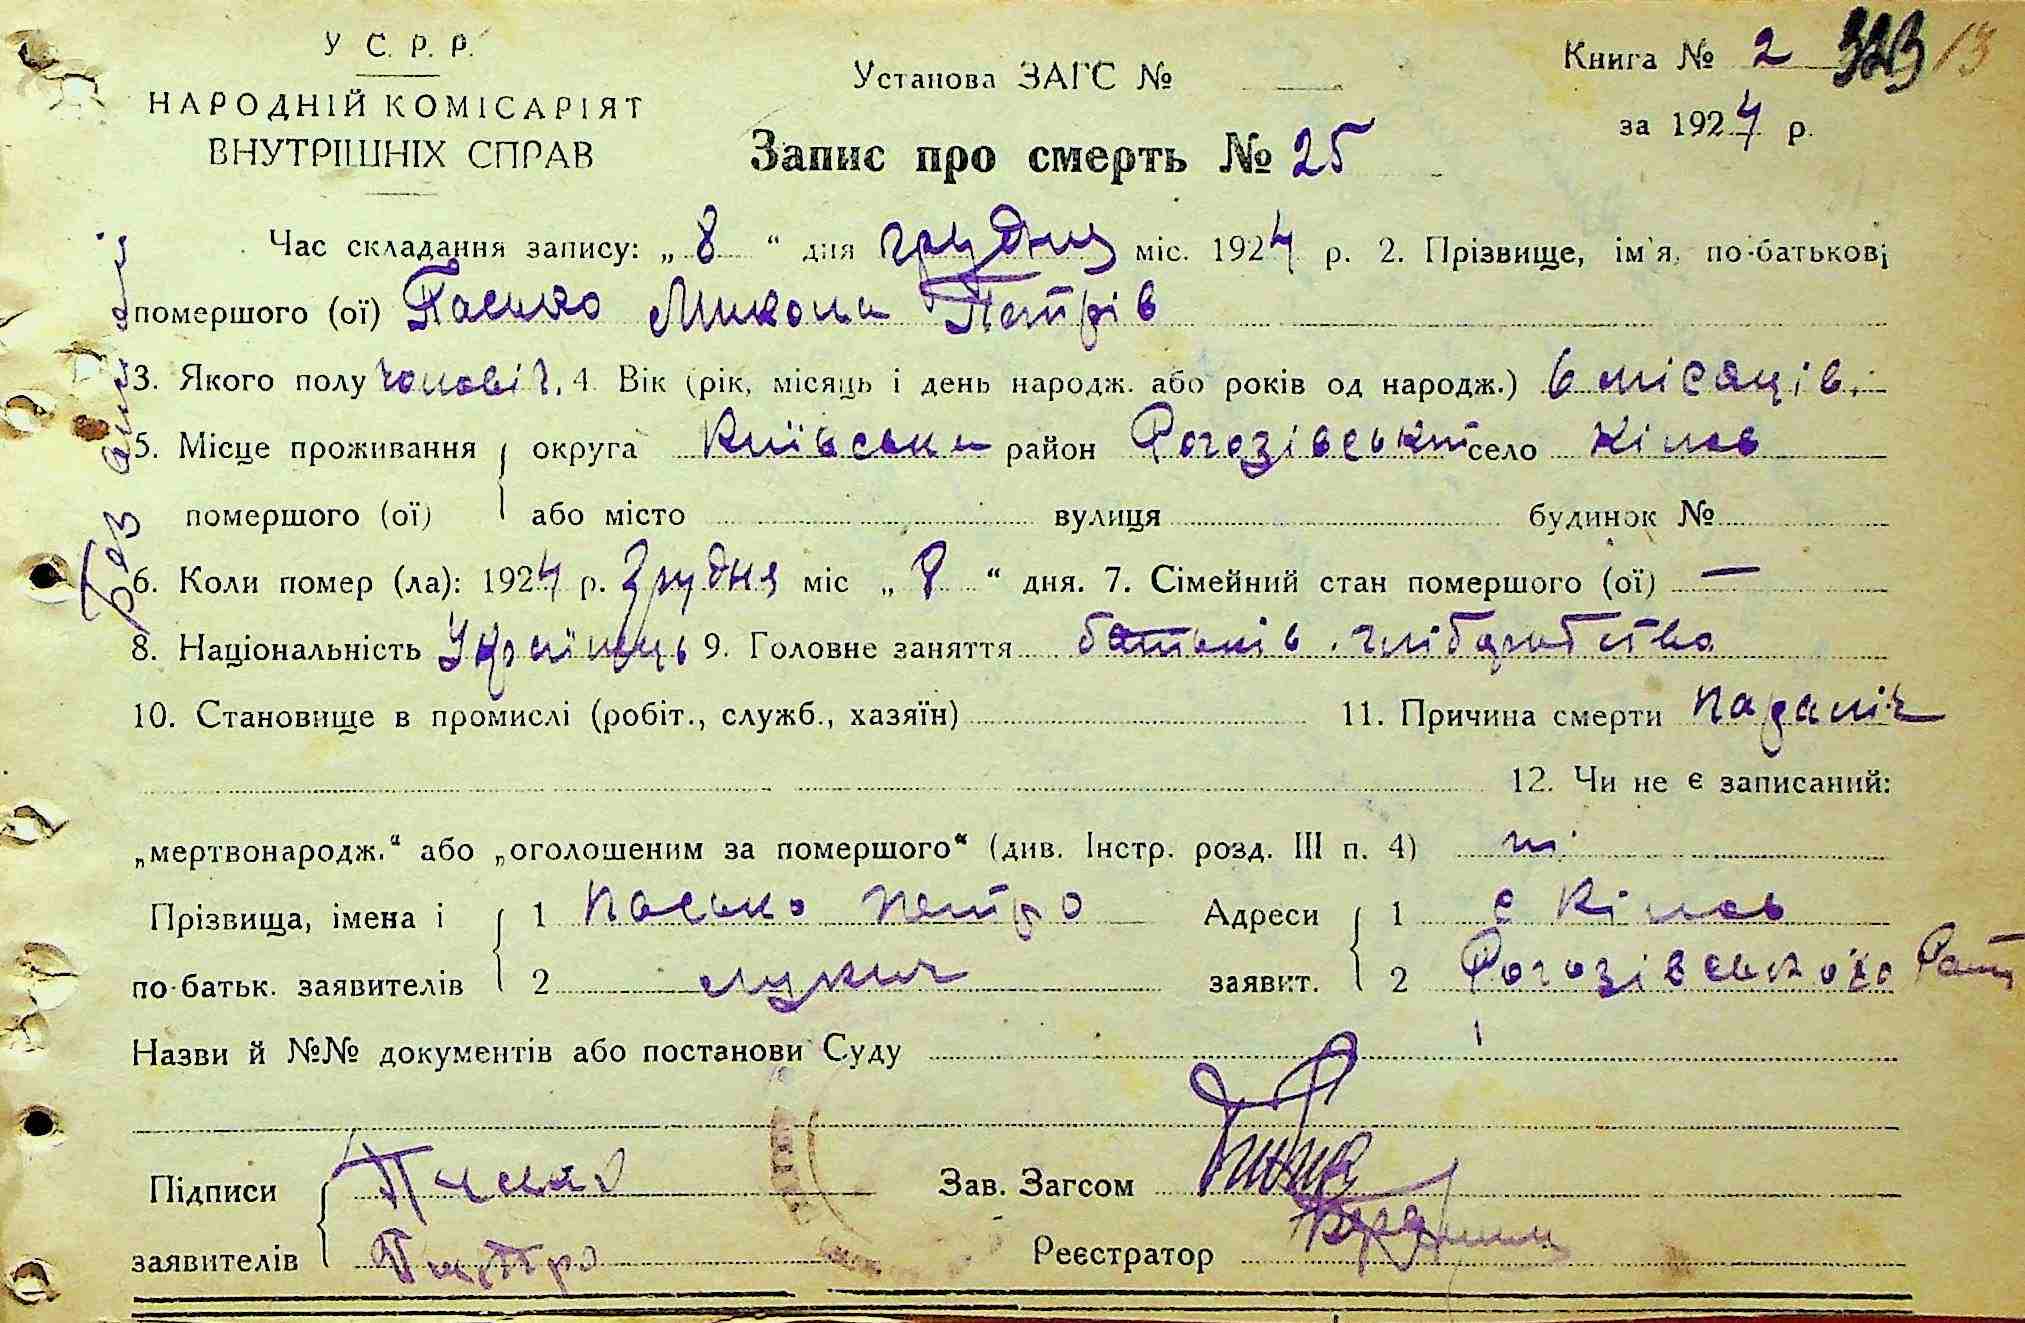 У. С. Р. Р.
НАРОДНІЙ КОМІСАРІЯТ
ВНУТРІШНІХ СПРАВ
Установа ЗАГС №
Книга № 2 323 13
за 1924 р.
Запис про смерть № 25
Час складання запису: „ 8 “ дня грудня міс. 1924 р. 2. Прізвище, ім'я, по-батькові
помершого (ої) Пасько Микола Петрів
3. Якого полу чоловіч. 4. Вік (рік, місяць і день народж. або років од народж.) 6 місяців.
5. Місце проживання округа Київська район Рогозівський село Кілов
помершого (ої) або місто вулиця будинок №
6. Коли помер (ла): 1924 р. Грудня міс „ 8 “ дня. 7. Сімейний стан помершого (ої) —
8. Національність Українець 9. Головне заняття батьків. хліборобство
10. Становище в промислі (робіт., служб., хазяїн) 11. Причина смерти параліч
12. Чи не є записаний:
„мертвонародж.“ або „оголошеним за помершого“ (див. Інстр. розд. III п. 4) ні
Прізвища, імена і 1 Пасько Петро Адреси 1 с Кілов
по-батьк. заявителів 2 Лукич заявит. 2 Рогозівського
Назви й №№ документів або постанови Суду
Підписи Пасько Зав. Загсом
заявителів Петро Реєстратор
Без